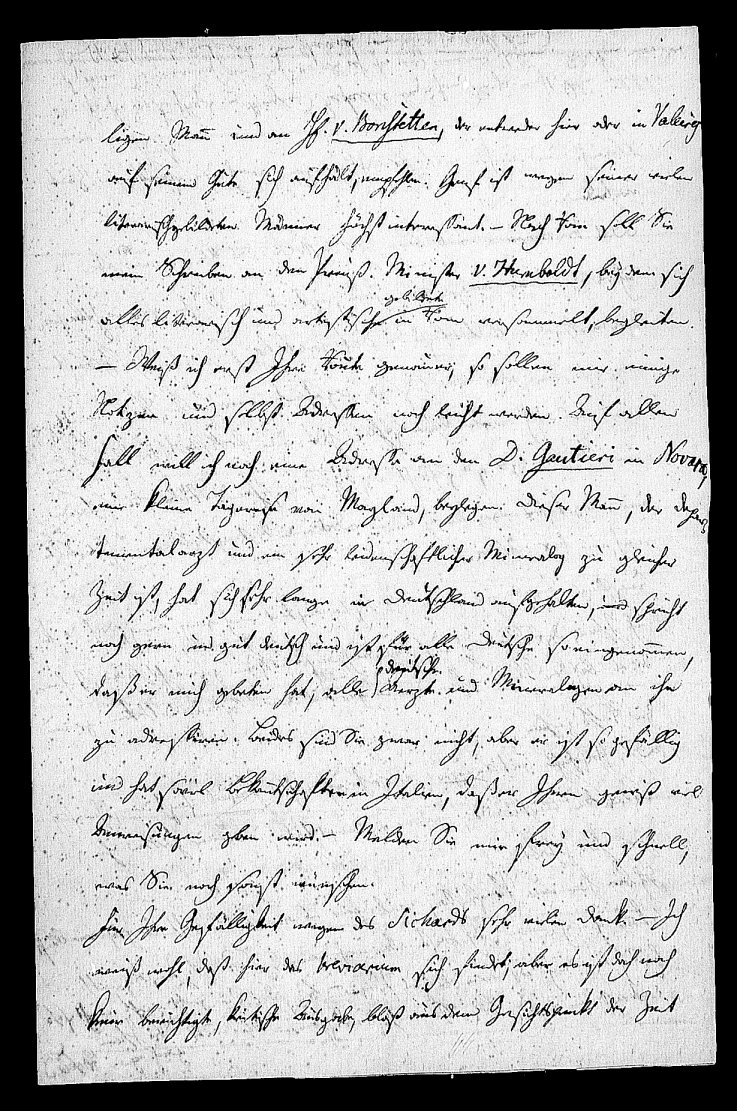 ligen Mañ und an Hf. v. Bonstetten, der entweder hier oder in Valeirg
auf seinem Gute sich aufhält, empfehlen. Genf ist wegen seiner vielen
literarischgebildeten Männer höchst interessant. – Nach Rom soll Sie
mein Schreiben an den Preuß. Minister v. Humboldt, bey dem sich
alles literarisch und artistisch gebildete in Rom versammelt, begleiten.
– Weiß ich erst Ihre Route genauer, so sollen nur einige
Notizen und selbst Adressen noch leicht werden. Auf allen
Fall will ich noch eine Adresse an den D. Gautieri in Novara,
eine kleine Tagereise von Mayland, beylegen. Dieser Mañ, der Depar
tementalarzt und ein sehr leidenschaftlicher Mineralog zu gleicher
Zeit ist, hat sich sehr lange in Deutschland aufgehalten, und spricht
noch gern und gut deutsch und ist für alle Deutsche so eingenom̄en,
daß er mich gebeten hat, alle deutsche Aerzte und Mineralogen an ihn
zu adressiren. Beides sind Sie zwar nicht, aber er ist so gefällig
und hat soviel Bekanntschaften in Italien, daß er Ihnen gewiß viel
Anweisungen geben wird. – Melden Sie mir frey und schnell,
was Sie noch sonst wünschen.
Für Ihre Gefälligkeit wegen des Sichards sehr vielen Dank. – Ich
weiß wohl, daß hier das Breviarium sich findet, aber es ist doch noch
keine berichtigte, kritische Ausgabe, bloß aus dem Gesichtspunkt der Zeit